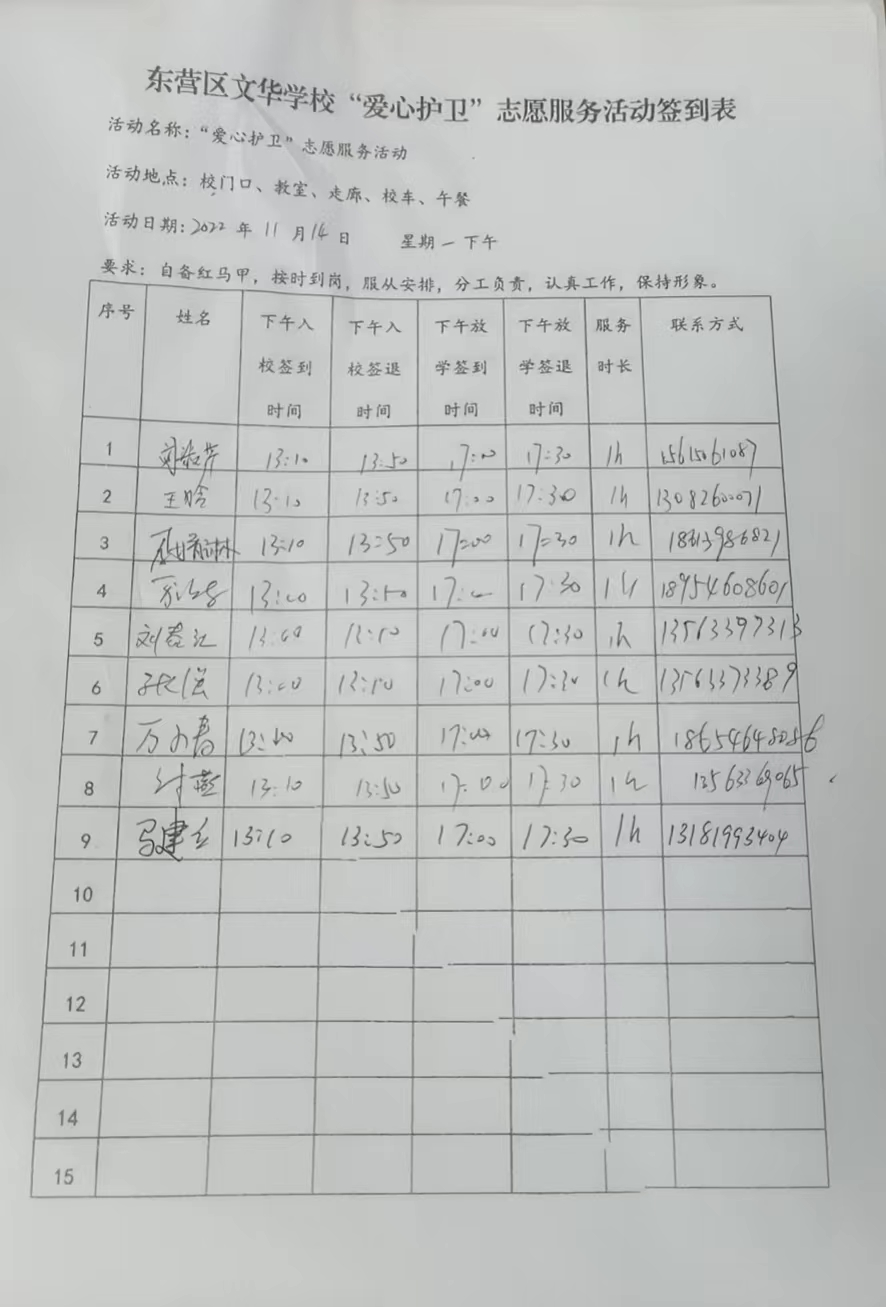 东营区文华学校“爱心护卫”志愿服务活动签到表
活动名称：“爱心护卫”志愿服务活动
活动地点：校门口、教室、走廊、校车、午餐
活动日期：2022 年 11 月 14 日 星期一下午
要求：自备红马甲，按时到岗，服从安排，分工负责，认真工作，保持形象。
序号 姓名 下午入校签到时间 下午入校签退时间 下午放学签到时间 下午放学签退时间 服务时长 联系方式
1 13:10 13:50 17:00 17:30 1h 15615061087
2 王晗 13:10 13:50 17:00 17:30 1h
3 13:10 13:50 17:00 17:30 1h 18613986821
4 13:00 13:50 17:00 17:30 1h 18954608601
5 刘春江 13:00 13:50 17:00 17:30 1h 13563397313
6 13:00 13:50 17:00 17:30 1h 13563373389
7 万小春 13:10 13:50 17:00 17:30 1h 18654648086
8 付燕 13:10 13:50 17:00 17:30 1h 13563369065
9 马建 13:10 13:50 17:00 17:30 1h 13181993404
10
11
12
13
14
15